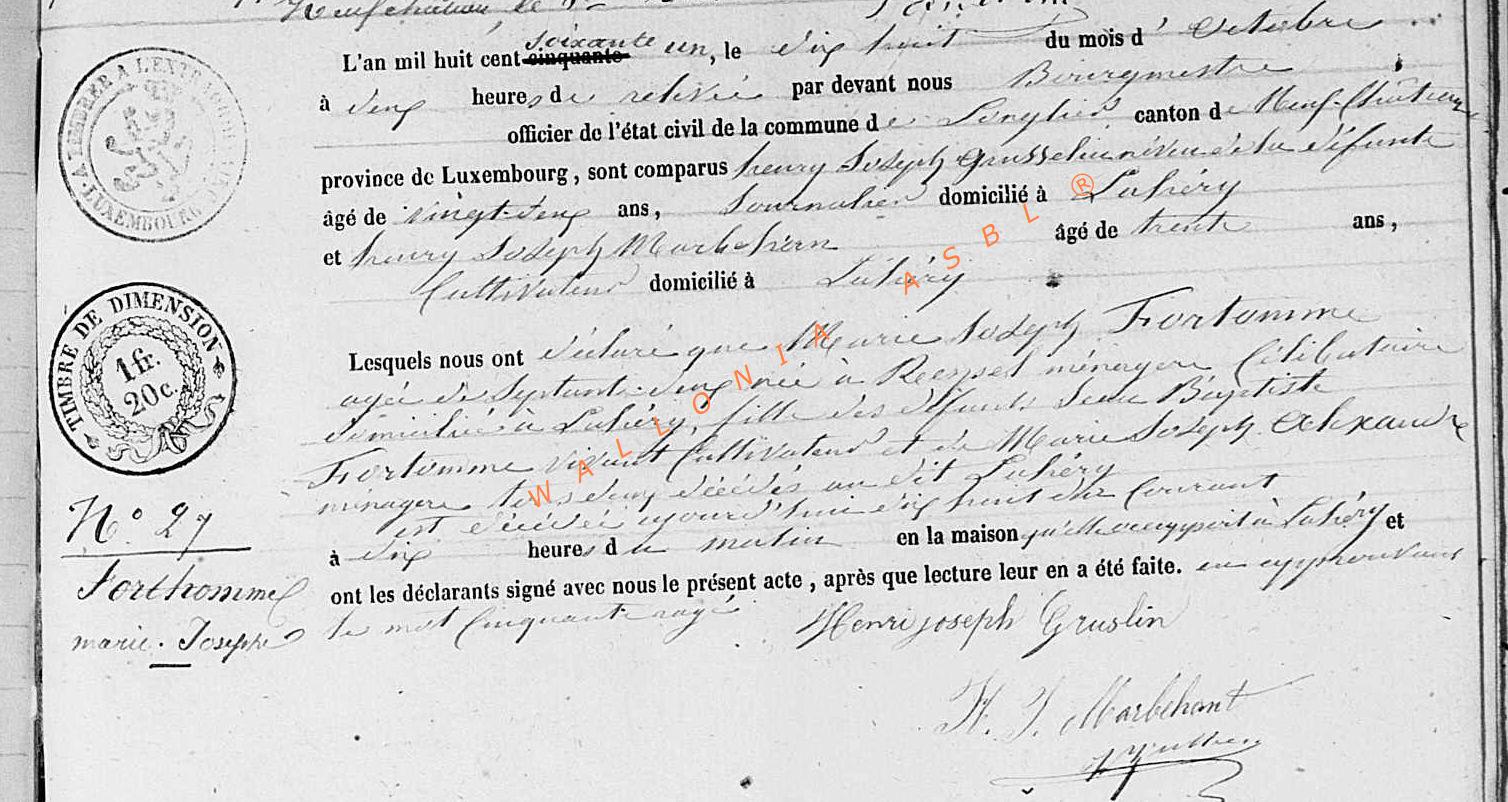 Neufchâteau le
L'an mil huit cent cinquante soixante un, le dix huit du mois d'Octobre
à deux heures de relevée par devant nous Bourgmestre
officier de l'état civil de la commune de Longlier canton de Neufchâteau
province de Luxembourg, sont comparus henry Joseph Grusselin néveu de la défunte
âgé de vingt-deux ans, Journalier domicilié à Lahéry
et henry Joseph Marbehan âgé de trente ans,
Cultivateur domicilié à Lahéry
Lesquels nous ont déclaré que Marie Joseph Fortomme
agée de Septante-deux née à Respelt ménagere Célibataire
domiciliée à Lahéry, fille des défunts Jean Baptiste
Fortomme vivant Cultivateur et de Marie Joseph Alexandre
ménagere tous deux décédés au dit Lahéry
est décédée aujourd'hui dix huit du Courant
à dix heures du matin en la maison qu'elle occuppoit à Lahéry et
ont les déclarants signé avec nous le présent acte, après que lecture leur en a été faite. en approuvant
le mot Cinquante rayé
Henri joseph Gruslin
H. J. Marbehant
A TIMBRER A L'EXTRAORDINAIRE
LUXEMBOURG
TIMBRE DE DIMENSION
1 fr.
20 c.
N° 27
Forthomme
marie. Josephe
WALLONIA ASBL ®